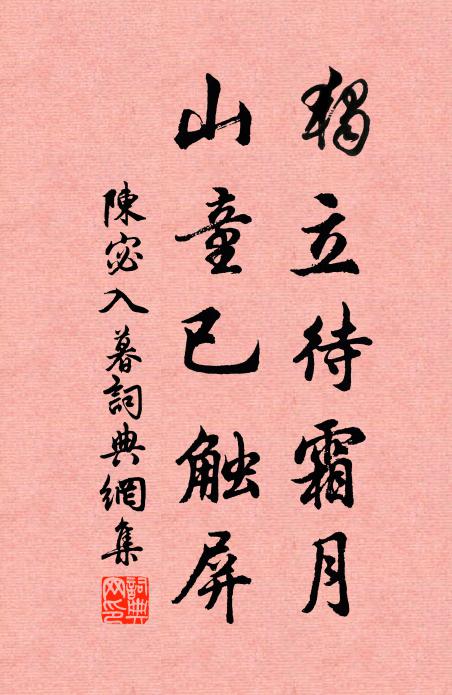 獨立待霜月
山童已触屏
陳宓入暮詞典網集
詞典網印